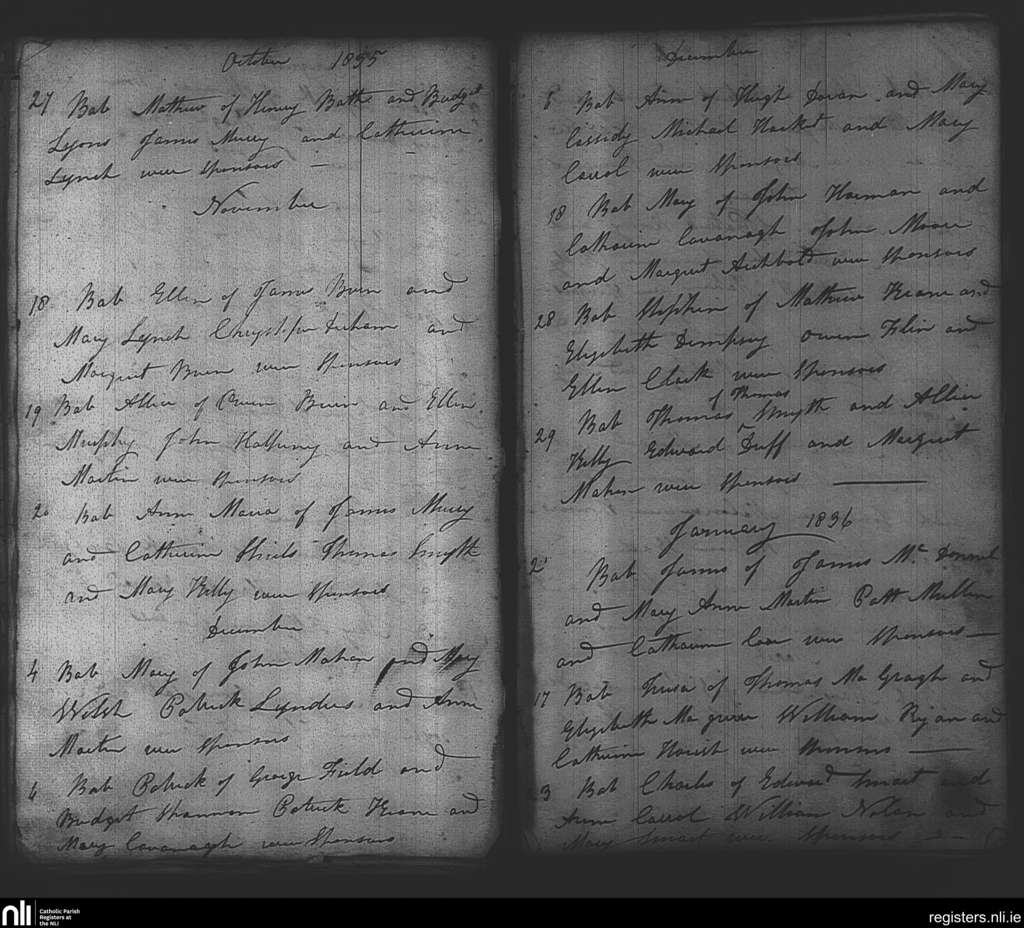 October 1835
27 Bab Mathew of Henry Bath and Bridget
Lyons James Murry and Catherine
Lynch were Sponsors
November
18 Bab Ellen of James Bvrn and
Mary Lynch and
Margret Bvrn were Sponsors
19 Bab Allice of Owen Bvrn and Ellen
Murphy John Halfpenny and Anne
Martin were Sponsors
20 Bab Anne Maria of James Murry
and Catherine Shiels Thomas Smyth
and Mary Kelly were Sponsors
December
4 Bab Mary of John Mahan and Mary
Welsh Patrick Lynders and Anne
Martin were Sponsors
4 Bab Patrick of George Field and
Bridget Shannon Patrick Keane and
Mary Cavanagh were Sponsors
December
5 Bab Ann of Hugh Doran and Mary
Cassidy Michael Hacket and Mary
Carrol were Sponsors
18 Bab Mary of John Harman and
Catharine Cavanagh John Moore
and Margret Archbold were Sponsors
28 Bab Stephen of Mathew Keane and
Elizabeth Dempsey Owen Flin and
Ellen Clark were Sponsors
of Thomas
29 Bab Thomas Smyth and Allice
Kelly Edward Duff and Margret
Mahan were Sponsors
January 1836
2 Bab James of James Mc
and Mary Ann Martin Patt Mullen
and Catharine were Sponsors
17 Bab Teresa of Thomas Ma Gragh and
Elizabeth William Ryan and
Catherine were Sponsors
23 Bab Charles of Edward Smart and
Anne Carrol William Nolan and
Mary Smart were Sponsors
nli
Catholic Parish
Registers at
the NLI
registers.nli.ie